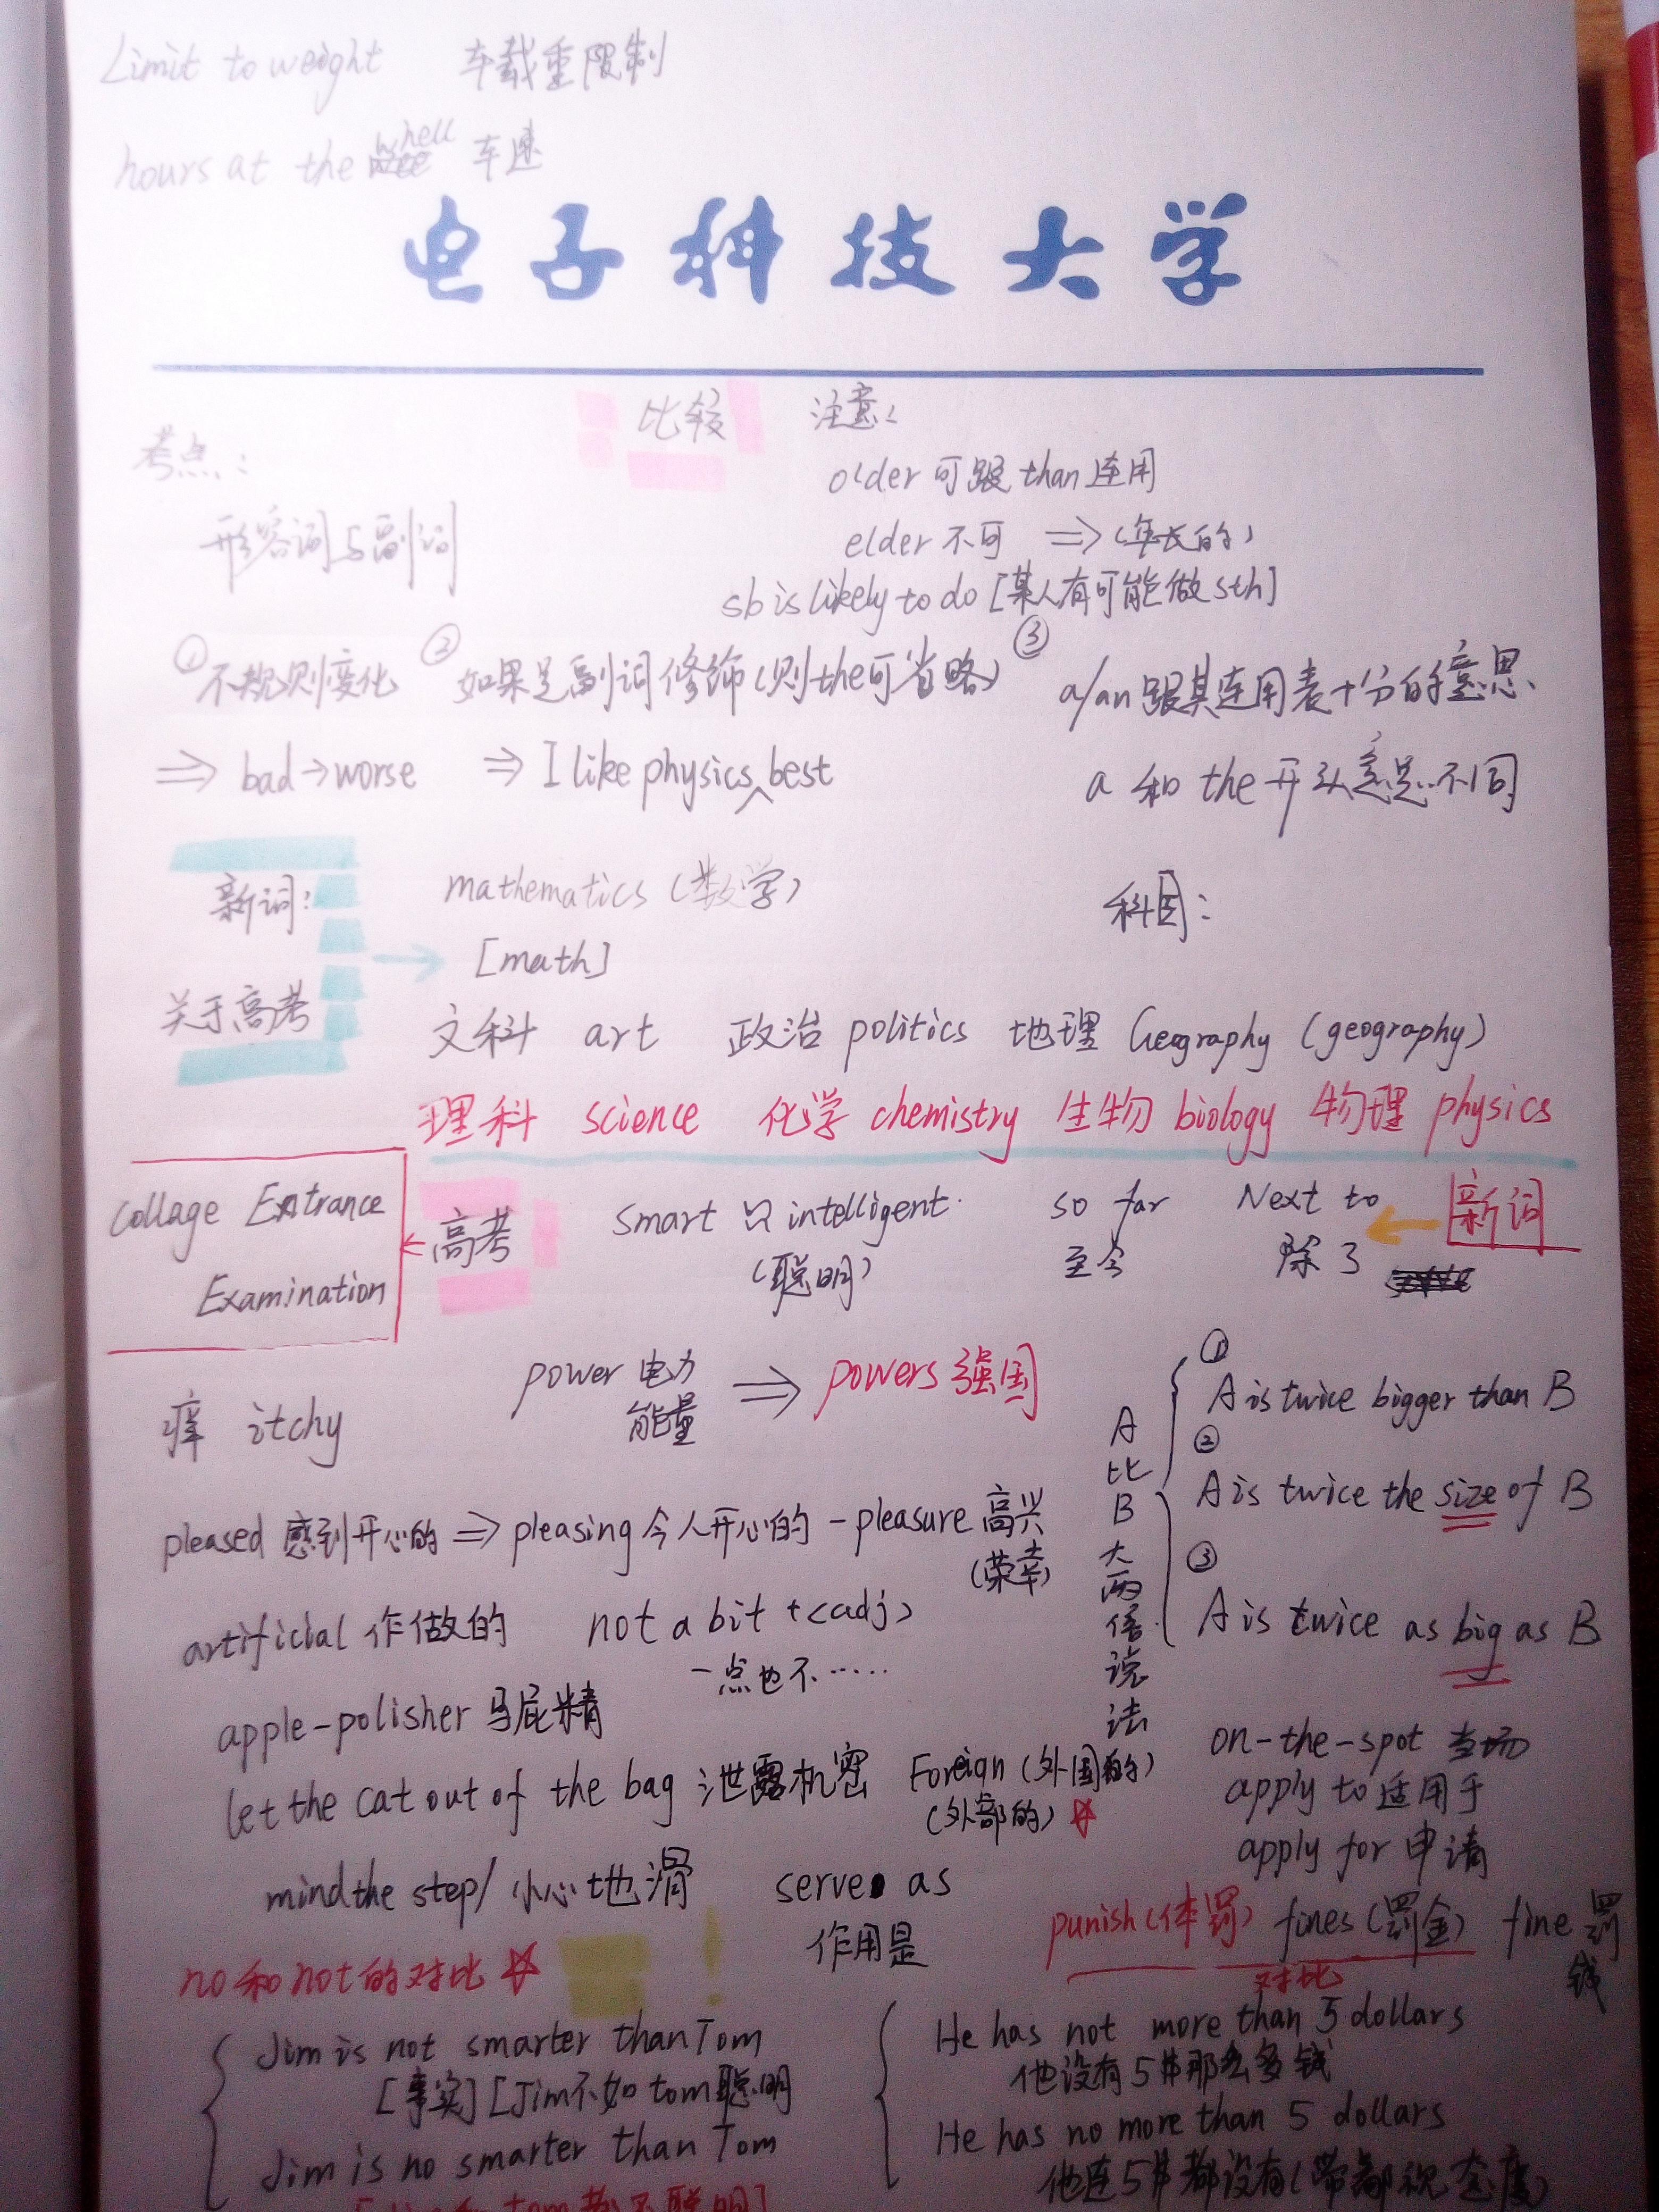 Limit to weight 车载重限制
hours at the whell 车速
电子科技大学
比较 注意:
考点:
older 可跟 than 连用
形容词与副词
elder 不可 ⇒ (年长的)
sb is likely to do [某人有可能做 sth]
① 不规则变化 ② 如果是副词修饰(则the可省略) ③ a/an 跟其连用表十分的意思、
⇒ bad→worse ⇒ I like physics^best a 和 the 开头意思不同
新词: mathematics (数学) 科目:
[math]
关于高考
文科 art 政治 politics 地理 Geography (geography)
理科 science 化学 chemistry 生物 biology 物理 physics
Collage Entrance
Examination
高考 smart 只 intelligent. so far Next to 新词
(聪明) 至今 除了
power 电力 ⇒ powers 强国
能量
痒 itchy
A比B大两倍说法
① A is twice bigger than B
② A is twice the size of B
③ A is twice as big as B
pleased 感到开心的 ⇒ pleasing 令人开心的 - pleasure 高兴
(荣幸)
artificial 作做的 not a bit +<adj>
一点也不……
apple-polisher 马屁精
on-the-spot 当场
let the cat out of the bag 泄露机密 Foreign (外国的)
(外部的) ☆
apply to 适用于
apply for 申请
mind the step/ 小心地滑 serve as
作用是
punish(体罚) fines(罚金) fine 罚钱
对比
no和not的对比 ☆ !
Jim is not smarter than Tom
[事实] [Jim不如tom聪明
Jim is no smarter than Tom
He has not more than 5 dollars
他没有5$那么多钱
He has no more than 5 dollars
他连5$都没有(带鄙视态度)